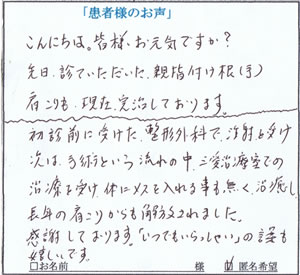 「患者様のお声」
こんにちは。皆様、お元気ですか?
先日、診ていただいた、親指付け根(手)
肩こりも、現在、完治しております。
初診前に受けた、整形外科で、注射を受け
次は、手術という流れの中、三愛治療室での
治療を受け、体にメスを入れる事も無く、治癒し
長年の肩こりからも解放されました。
感謝しております。「いつでもいらっしゃい」の言葉も
嬉しいです。
□お名前 様 匿名希望